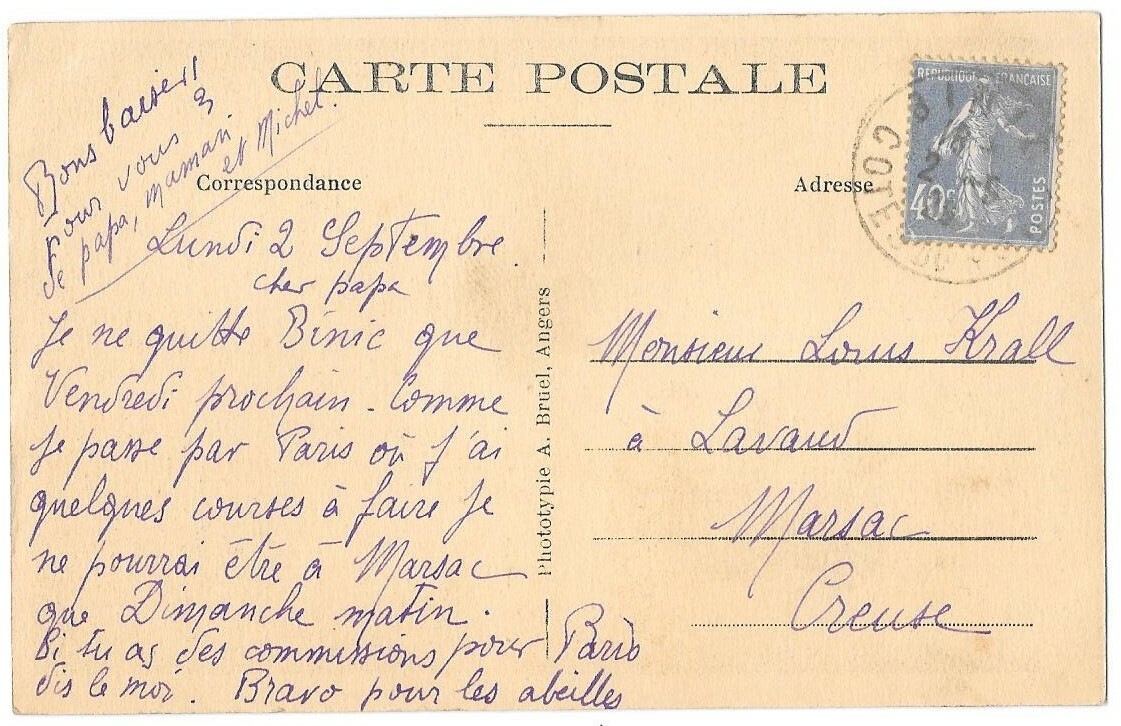 CARTE POSTALE
Bons baisers
Pour vous 3
de papa, maman
et Michel.
Correspondance
Adresse
RÉPUBLIQUE FRANÇAISE
40c
POSTES
BINIC
COTES DU
Lundi 2 Septembre.
cher papa
Je ne quitte Binic que
Vendredi prochain. Comme
je passe par Paris où j'ai
quelques courses à faire je
ne pourrai être à Marsac
que Dimanche matin.
Si tu as des commissions pour Paris
dis le moi. Bravo pour les abeilles
Phototypie A. Bruel, Angers
Monsieur Louis Krall
à Lavaud
Marsac
Creuse